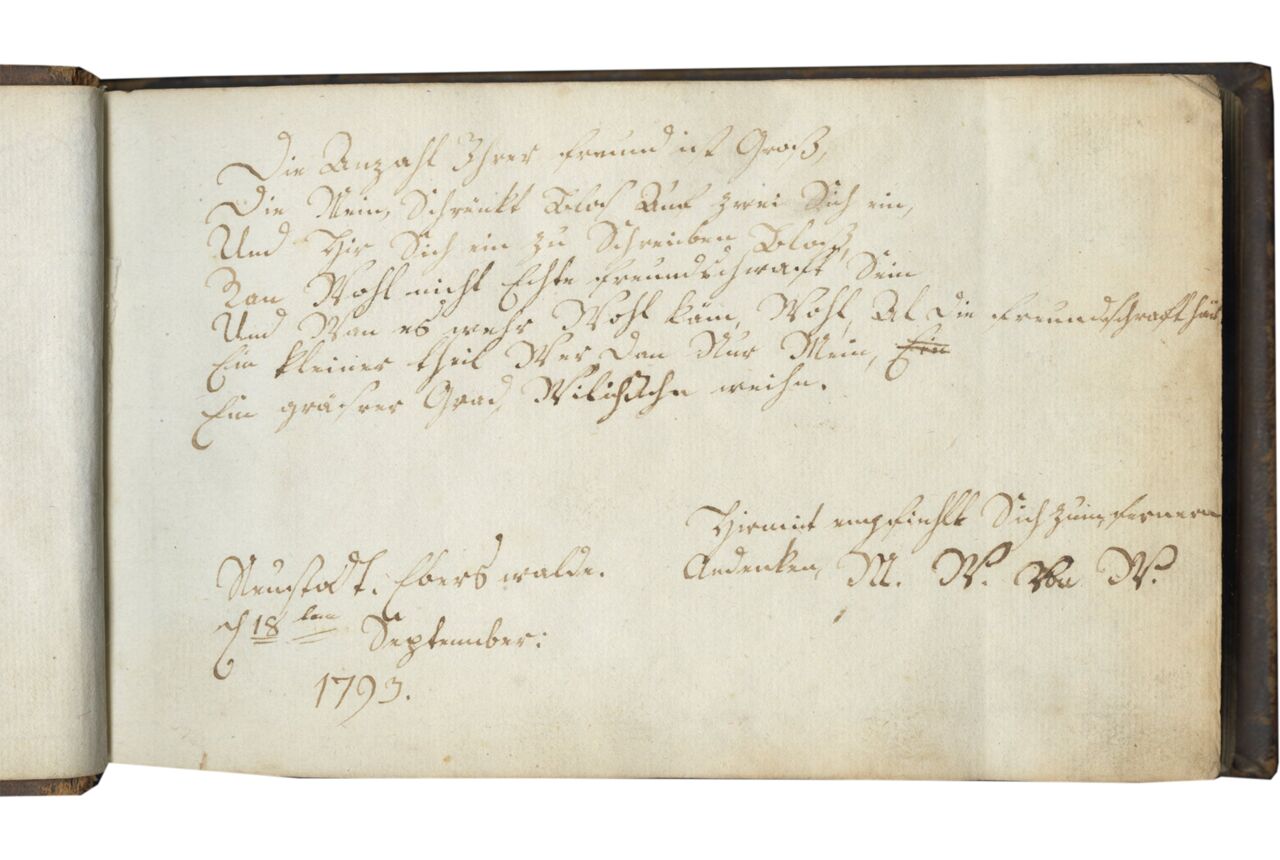 Die Anzahl Ihrer freund ist Groß,
Die Mein, Schrenkt Blos Auf zwei Sich ein,
Und Hir Sich ein zu Schreiben Blos,
Kan Wohl nicht Echte freundschwaft Sein
Und Wan es wehr Wohl kām, Wohl, Al die freundschraft
Ein kleiner theil Wer dan Nur Mein, Ein
Ein gräsrer Grad weihn.
Hirmit empfiehlt Sich zum fernern
Andenken, M. W. von W.
Neustadt. Ebers walde.
d 18 ten September:
1793.